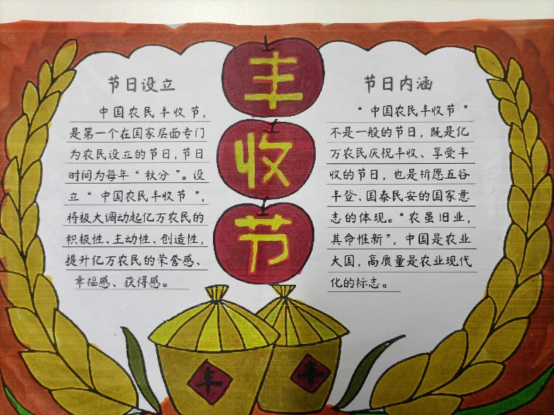 丰
收
节
节日设立
中国农民丰收节，
是第一个在国家层面专门
为农民设立的节日，节日
时间为每年“秋分”。设
立“中国农民丰收节”，
将极大调动起亿万农民的
积极性、主动性、创造性，
提升亿万农民的荣誉感、
幸福感、获得感。
节日内涵
“中国农民丰收节”
不是一般的节日，既是亿
万农民庆祝丰收、享受丰
收的节日，也是祈愿五谷
丰登、国泰民安的国家意
志的体现。“农虽旧业，
其命惟新”，中国是农业
大国，高质量是农业现代
化的标志。
丰
丰